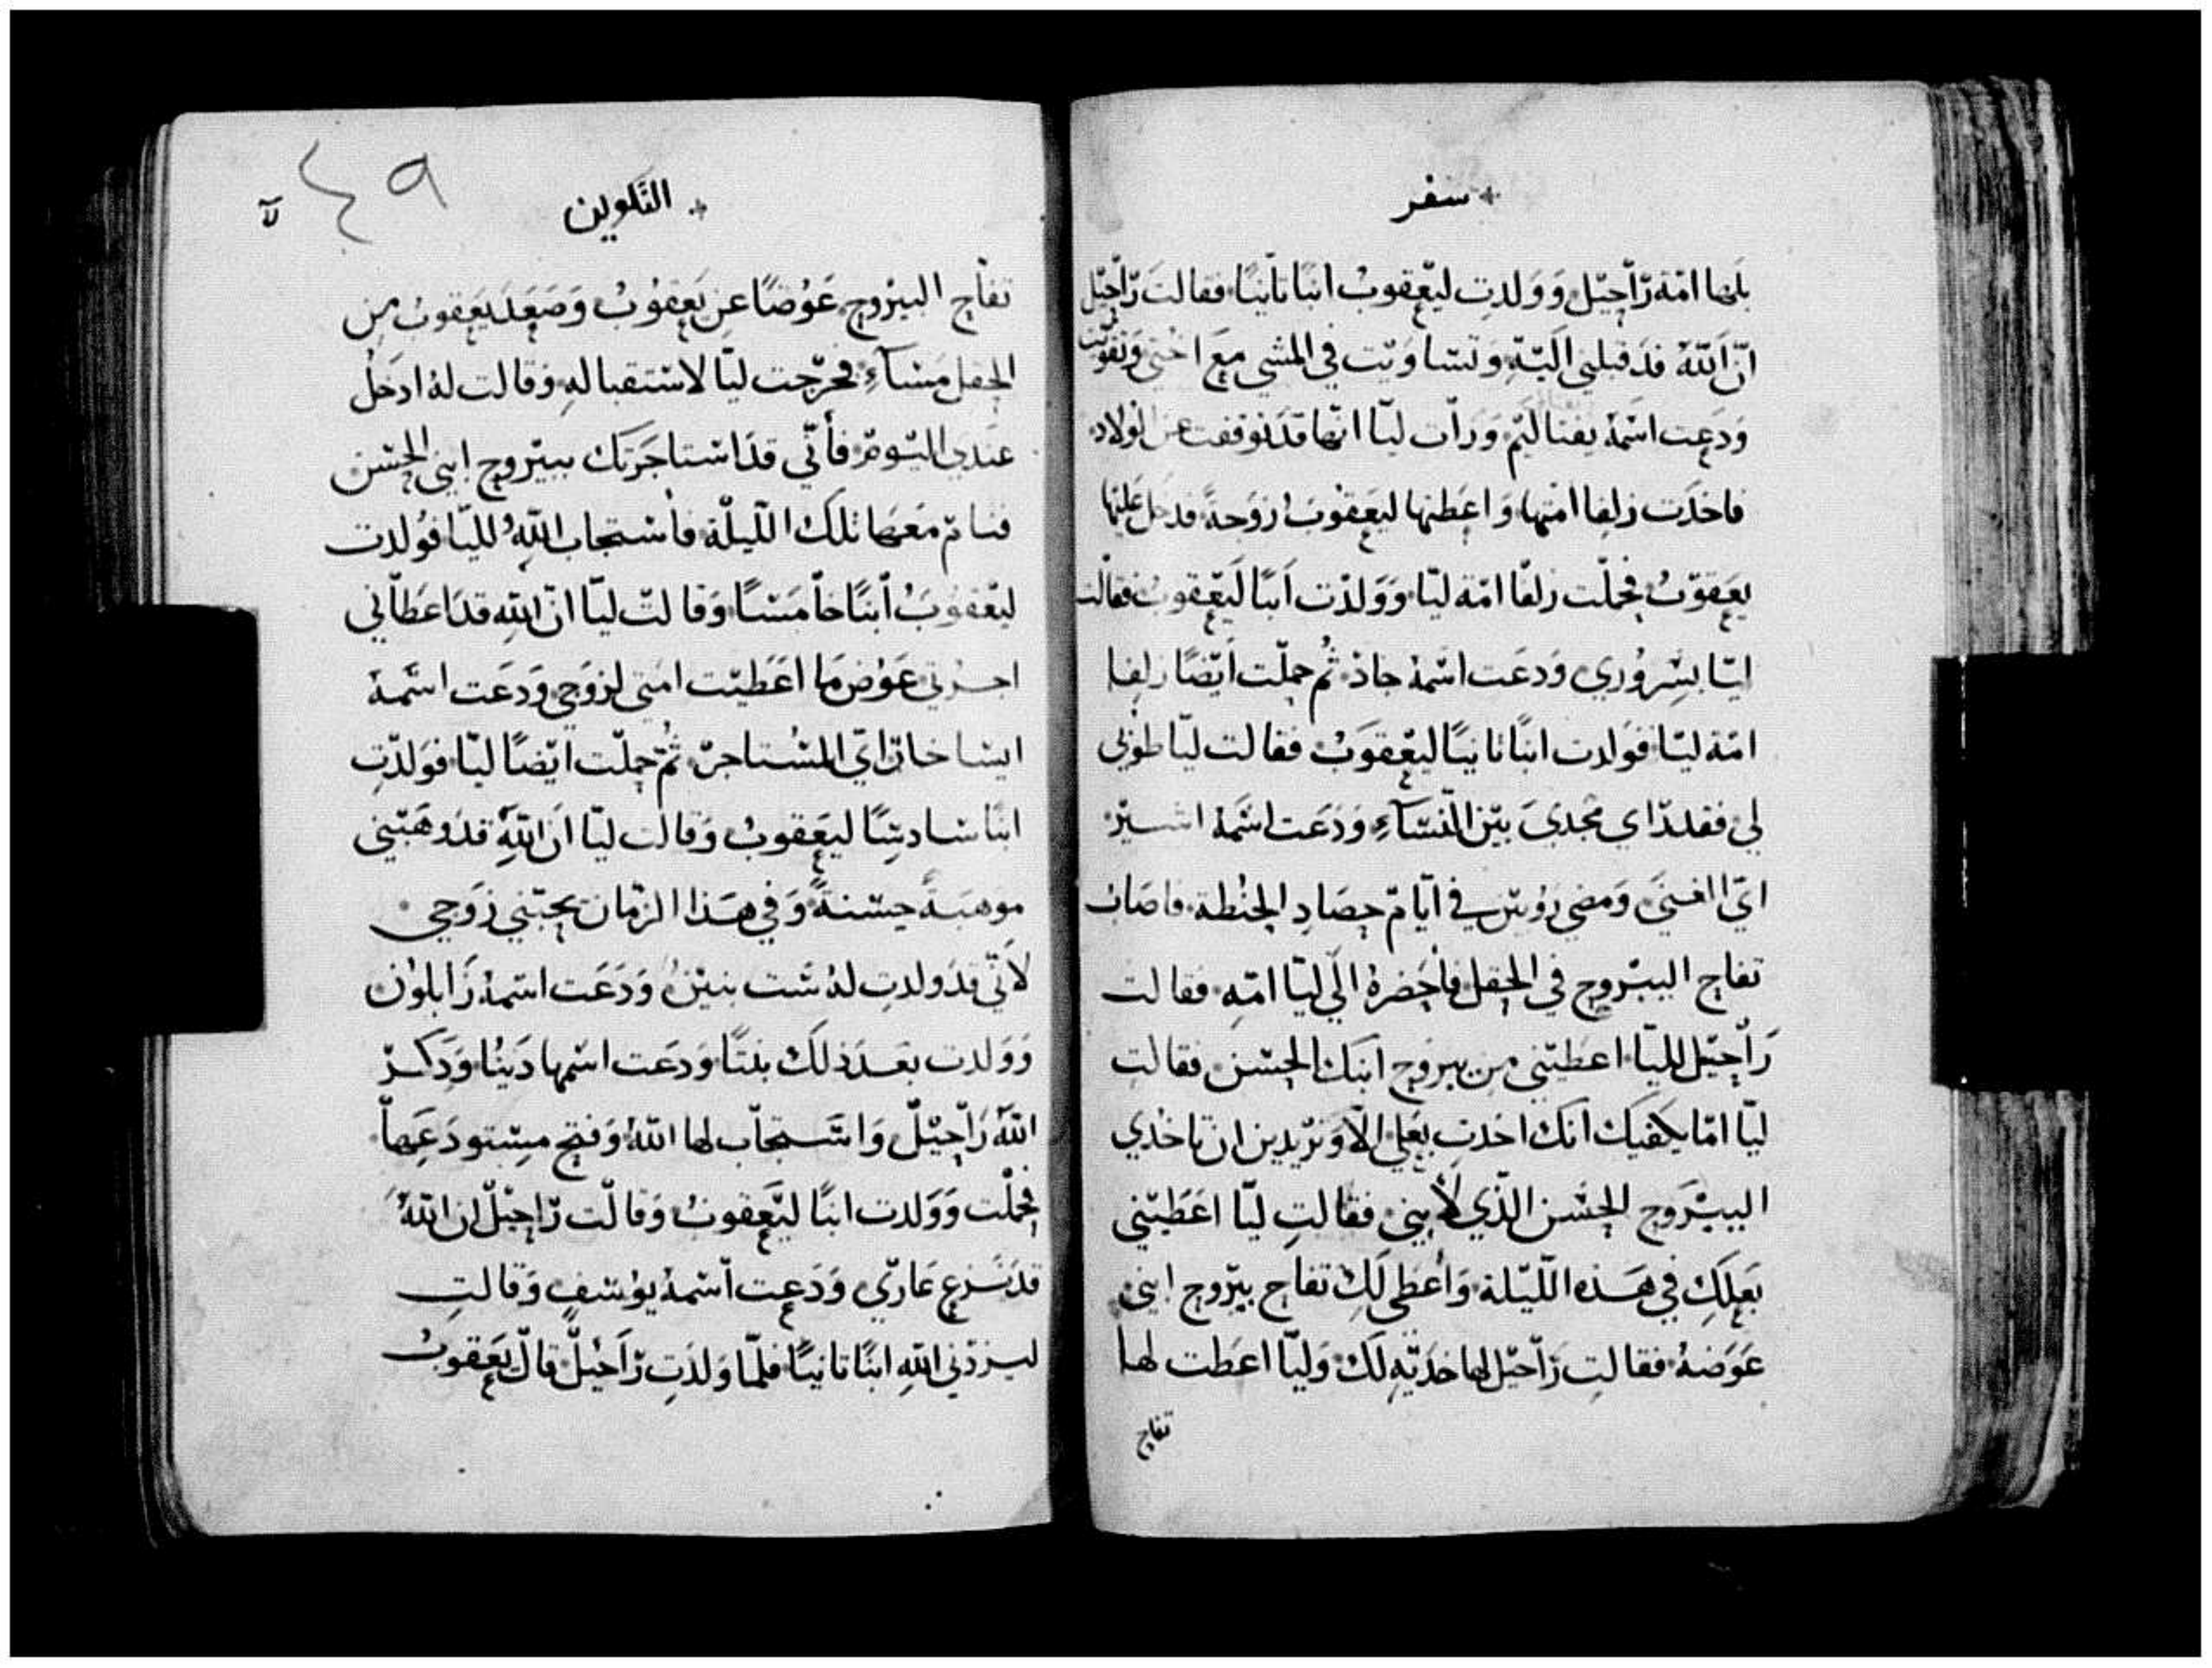 سفر
بلها امة رّاحيّل وَوَلدتِ ليعقوبُ ابنًا ثانيًا فقالت رّاحيّل
انّ اللّهُ قد قبلني البتّةِ وَتساوَيّت في المشي معَ اختي وَتقوّيّت
وَدعت اسّمهُ يفتاليّم وَرأت ليّا انّها قد توقفت عن الولادِ
فاخذَت زلفا امتها وَاعطتها ليعقوبُ زوَجةً فدخل عليها
يعقوّبُ فحملّت زلفا امّة ليّا وَوَلدّت ابنًا ليَعّقوبُ فقالت
ليّا بسِرُوري وَدعَت اسّمهُ جاذ ثُم حملّت ايّضًا زلفا
امّة ليّا فوَلدت ابنًا ثانيًا ليعّقوَبُ فقالت ليّا طوُبى
لي فقلدّاي مجديَ بيّن النّسَآءِ وَدَعَت اسّمهُ اشيرّ
ايّ الغنيَ وَمضي رَوُبيّن في ايّامّ حِصَادِ الحنُطة فاصَابَ
تفاح البيرّوح في الحقل فأحضرهُ الّي ليّا امّهِ فقالت
رَاحيّل لليّا اعطيّني من بيروَح ابنكَ الحسّن فقالتِ
ليّا امّا يكفيك انك اخذتِ بعَلي الّا وَترّيدين ان تاخذي
البيبّرَوح الحسّن الّذي لأبني فقالتِ ليّا اعَطيّني
بَعلَكِ في هَذه اللّيّلة وَأُعطى لَكِ تفاح بيرّوح ابني
عوَضهُ فقالتِ رَاحيّل لها خذيّهِ لَك وَليّا اعطَت لها
تفاح
التّكوين
لآ
٤٩
تفّاح البيرّوح عَوُضًا عن يَعقوُبُ وَصَعدَ يعَقوبُ من
الحقل مَسآءِ فخرّجت ليّا لاسّتقبالهِ وَقالت لهُ ادخلُ
عندي اليّومَ فأنّي قدَ اسّتاجَرَتك ببيّروح ابني الحسّن
فنامَ مَعَها تلكَ اللّيلّة فأسّتجاب اللّهُ لليّا فوُلدت
ليَعّقوَبُ ابنًا خاّمَسًا وَقالت ليّا انّ اللّهِ قد اعَطاّني
اجرّتي عَوَض مَا اعَطيّت امَتي لزوَجي وَدَعَت اسَّمهُ
ايسّا خارّ ايّ المسُتاجرّ ثُمّ حملّت ايّضًا ليّا فوَلدّتِ
ابنًا سادسًا ليعَقوبُ وَقالت ليّا انَ اللّهَ قدَ وَهبّني
موهبَةً حسّنةً وَفي هَذا الزمّان يحبّني زوَجي
لأنّي قدَ ولدتِ لهُ سَت بنيّنُ وَدَعَت اسّمهُ زَابلوُن
وَوَلدت بعَدَ ذلَك بنتًا وَدعَت اسّمها دَينُا وَذَكرّ
اللّهَ رَاّحيّلّ وَاسّتجاّب لها اللّهُ وَفتح مسّتودَعَهاّ
فحملّت وَوَلدت ابنًا ليّعَقوبُ وَقالّت رّاحيّلّ ان اللّهُ
قدَ نَزع عَارّي وَدَعت اسّمهُ يوُسّف وَقالتِ
ليزدّني اللّهِ ابنًا ثانيًا فلمّا وَلدَتِ رّاَحيّلّ قالّ يَعَقوبُ